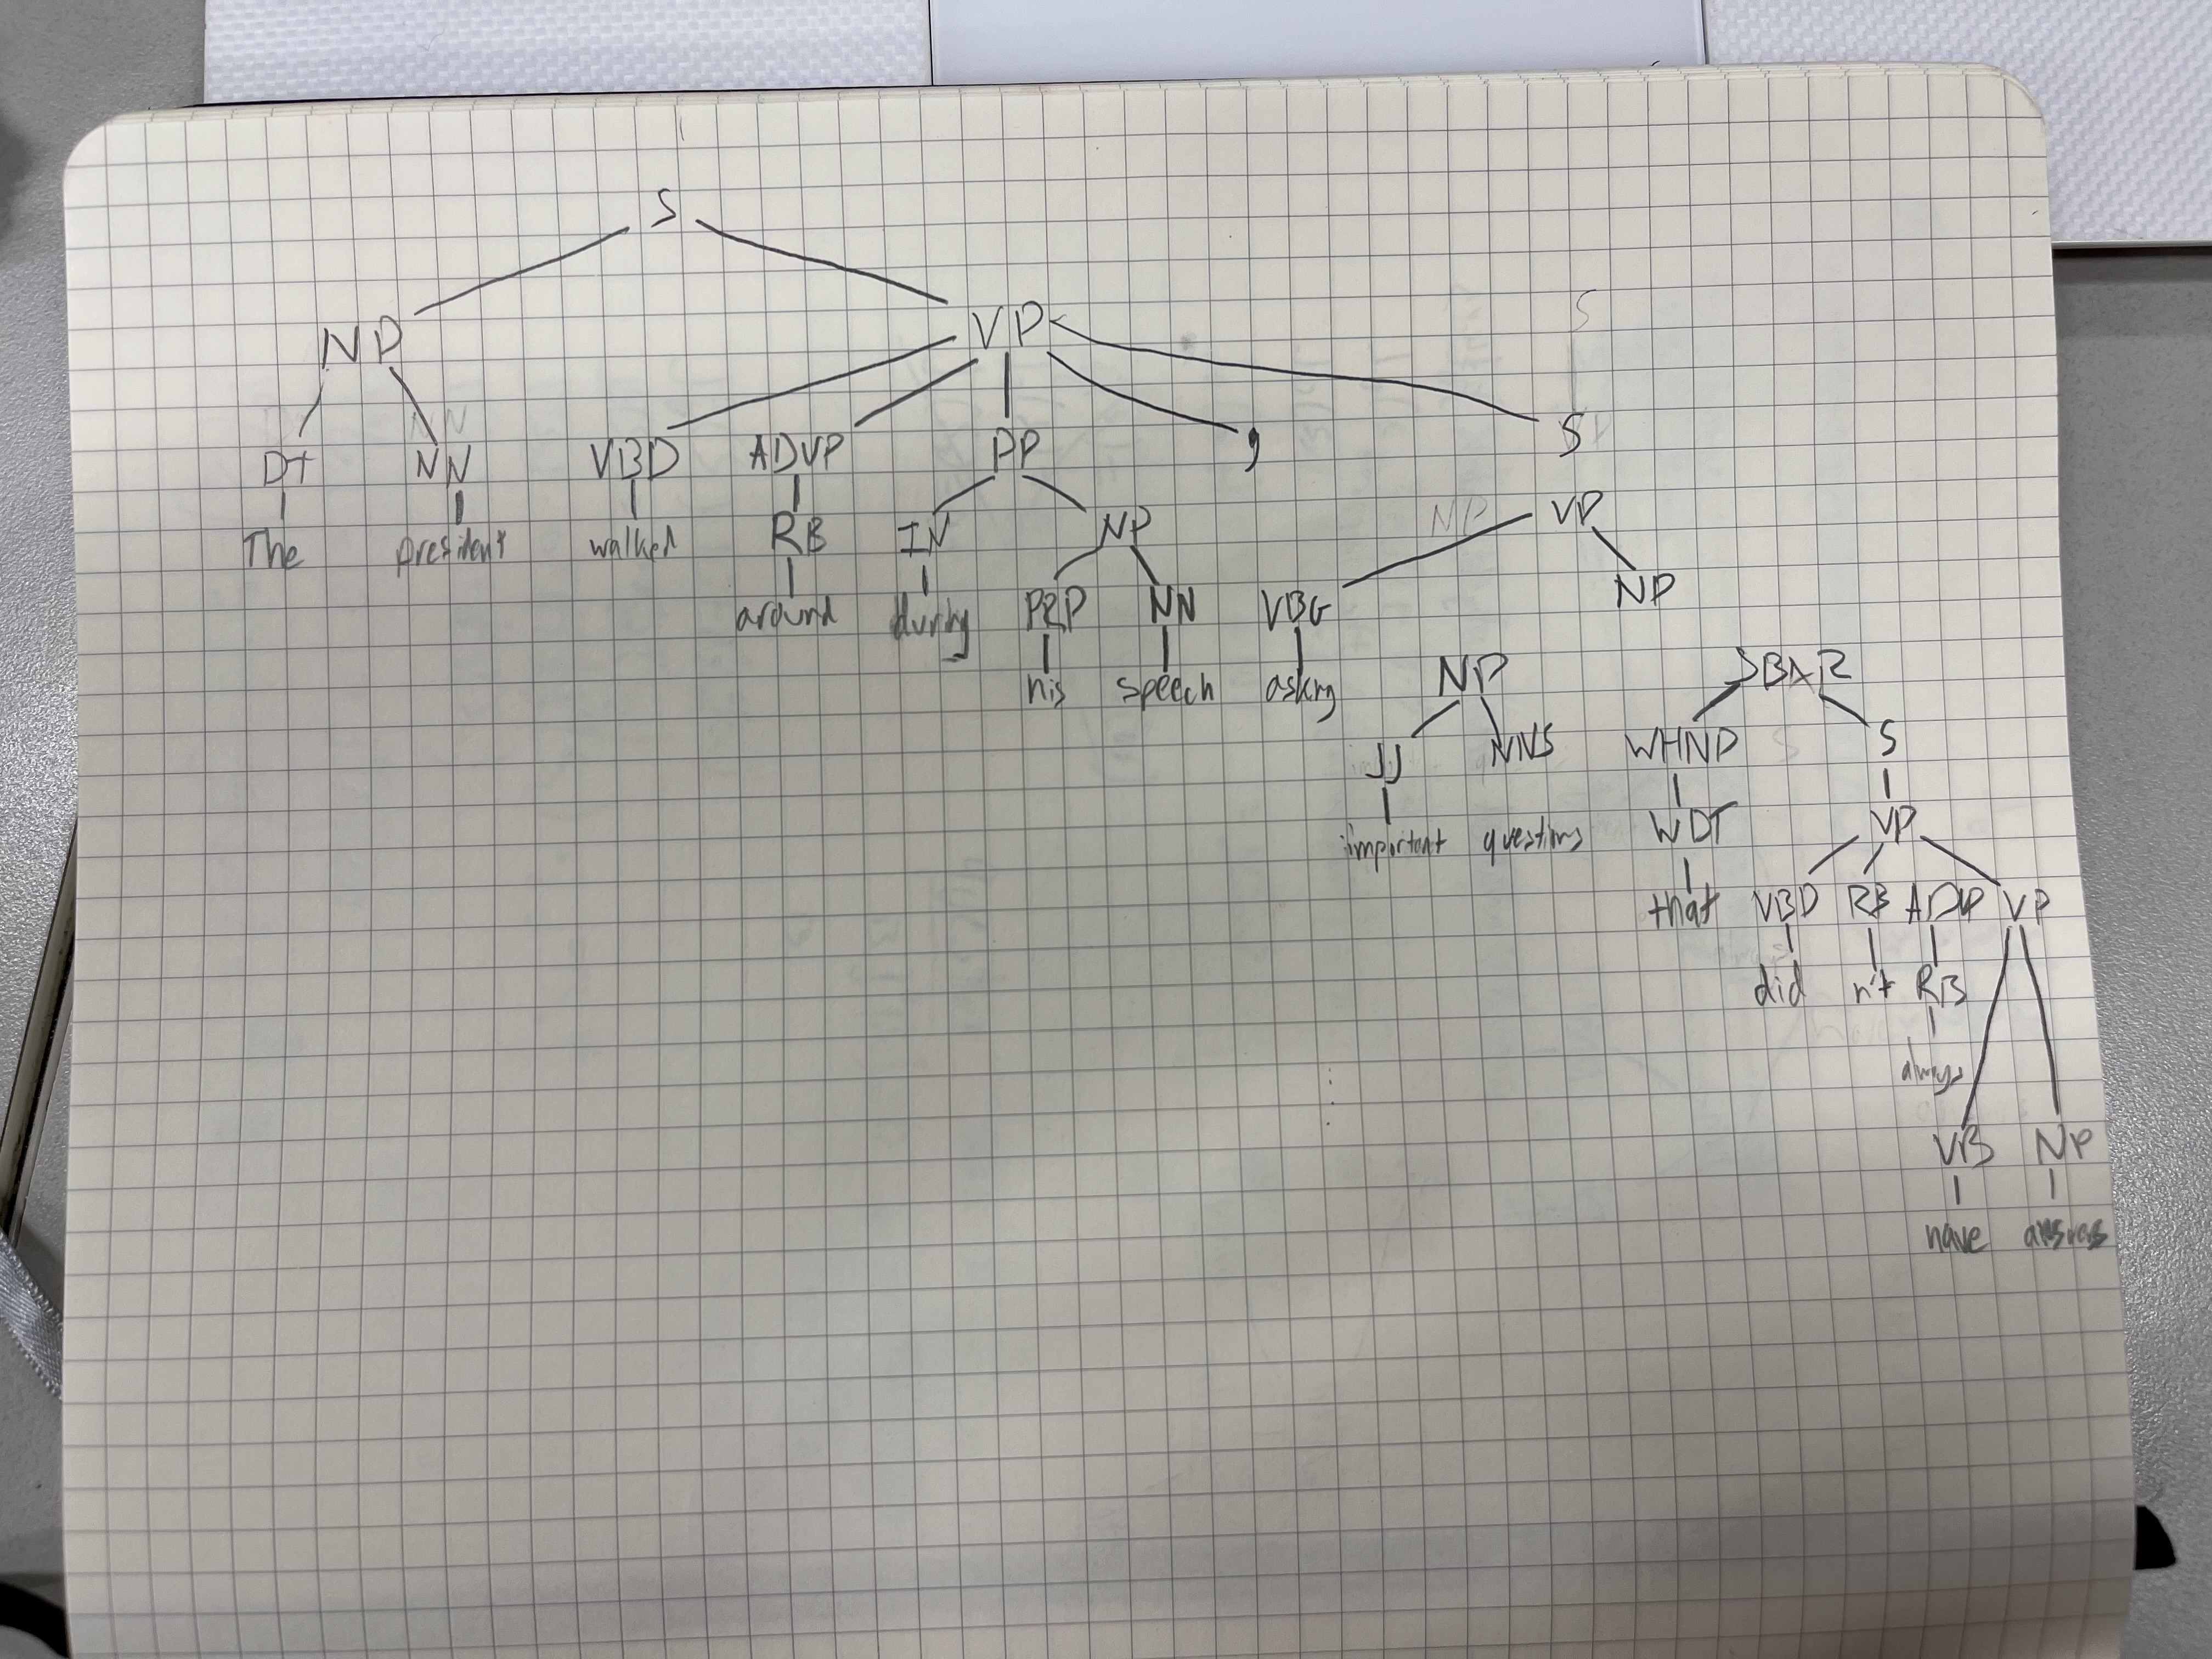 S
NP VP
DT NN VBD ADVP PP , S
The president walked RB IN NP VP
around during PRP NN VBG NP
his speech asking NP SBAR
JJ NNS WHNP S
important questions WDT VP
that VBD RB ADVP VP
did n't RB
always
VB NP
have answers